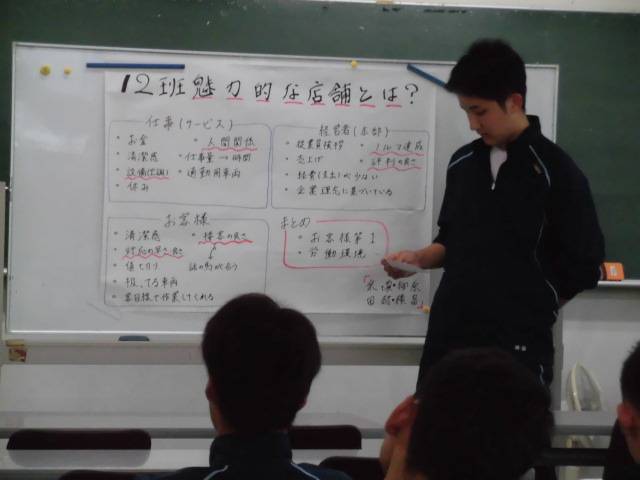 12班魅力的な店舗とは?
仕事(サービス)
・お金
・人間関係
・清潔感
・仕事量→時間
・設備(仕組)
・通勤用車両
・休み
経営者(本部)
・従業員挨拶
・ノルマ達成
・売上げ
・評判の良さ
・経費(支出)が少ない
・企業理念に基づいている
お客様
・清潔感
・接客の良さ
・対応の早さ、良さ
・値だん
話の馬が合う
・扱ってる車両
・お目様で作業してくれる
まとめ
・お客様第1
・労働環境